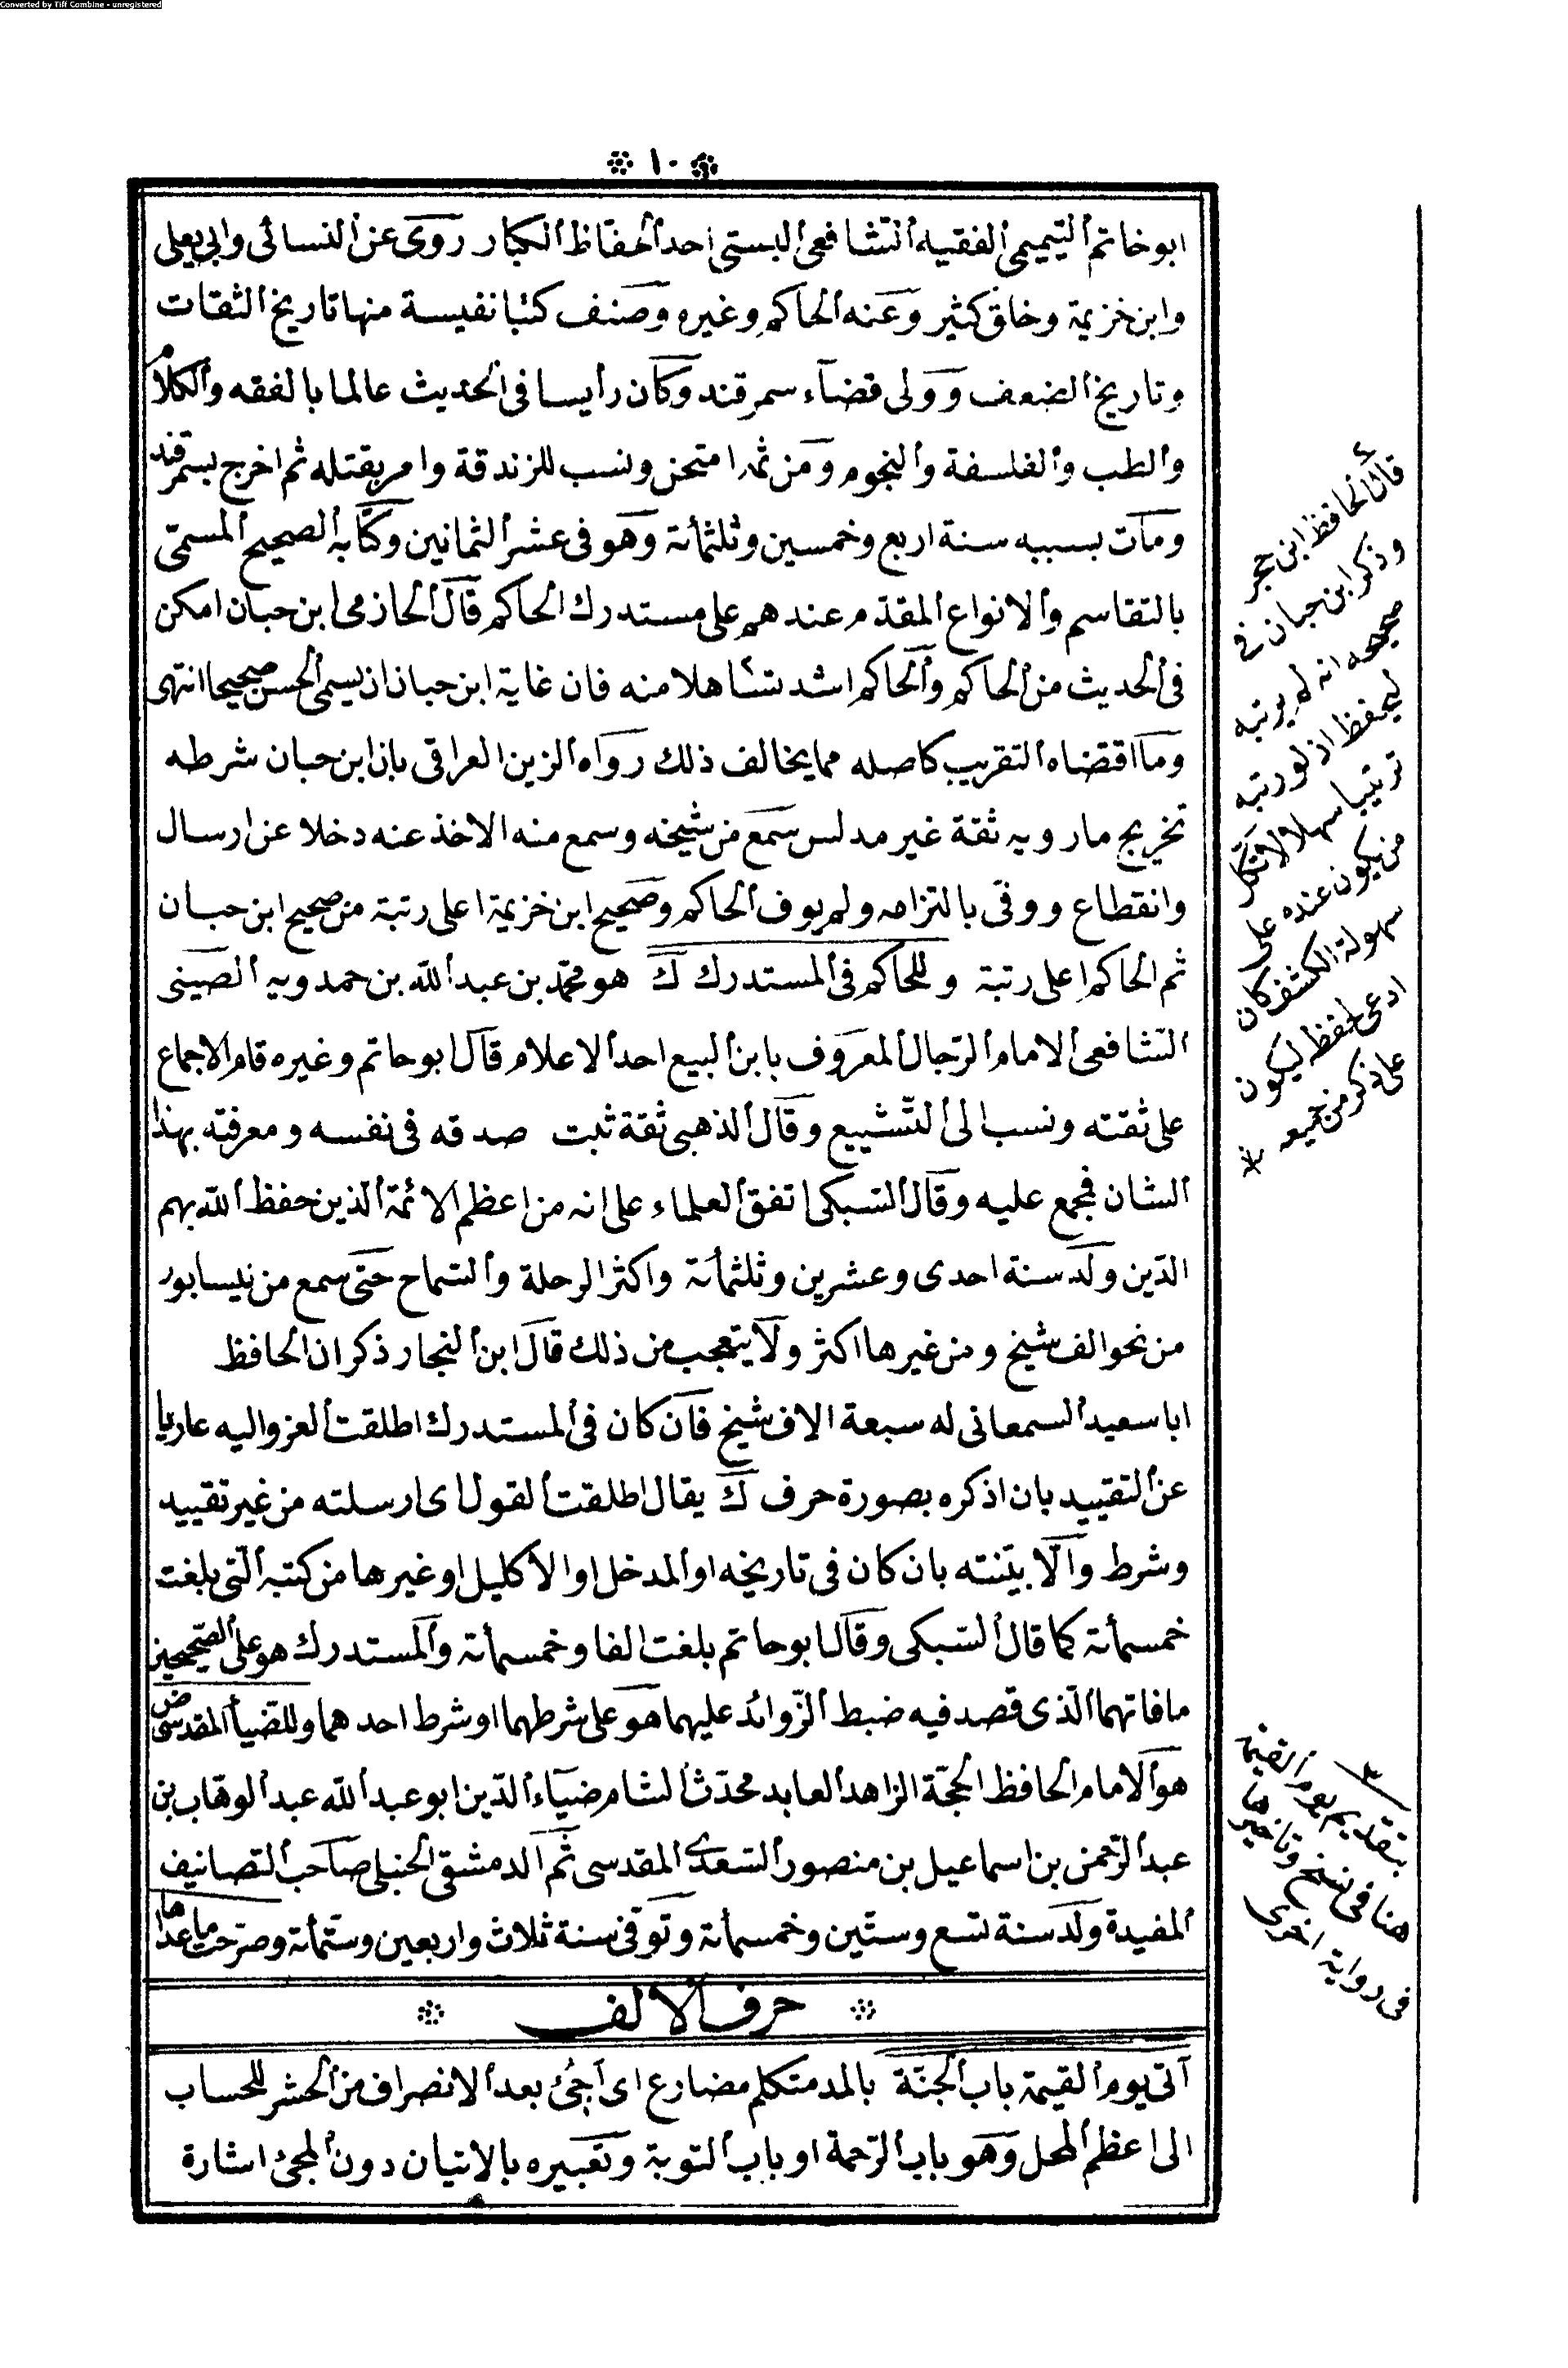 Converted by Tiff Combine - unregistered
١٠
ابو خاتم التميمى الفقيه الشافعى البستى احد الحفاظ الكبار روى عن النسائى وابى يعلى
وابن خزيمة وخلق كثير وعنه الحاكم وغيره وصنف كتبا نفيسة منها تاريخ الثقات
وتاريخ الضعف وولى قضاء سمرقند وكان رأيسا فى الحديث عالما بالفقه والكلام
والطب والفلسفة والنجوم ومن ثمه امتحن ونسب للزندقة وامر بقتله ثم اخرج بسمرقند
ومات بسببه سنة اربع وخمسين وثلثمأة وهو فى عشر الثمانين وكتابه الصحيح المسمى
بالتقاسم والانواع المقدم عندهم على مستدرك الحاكم قال الحازمى ابن حبان امكن
فى الحديث من الحاكم والحاكم اشد تساهلا منه فان غاية ابن حبان ان يسمى الحسن صحيحا انتهى
وما اقتضاه التقريب كاصله مما يخالف ذلك رواه الزين العراقى بان ابن حبان شرطه
تخريج مارويه ثقة غير مدلس سمع من شيخه وسمع منه الاخذ عنه دخلا عن ارسال
وانقطاع ووفى بالتزامه ولم يوف الحاكم وصحيح ابن خزيمة اعلى رتبة من صحيح ابن حبان
ثم الحاكم اعلى رتبة وللحاكم فى المستدرك ك هو محمد بن عبد الله بن حمدويه الصينى
الشافعى الامام الرجال المعروف بابن البيع احد الاعلام قال ابو حاتم وغيره قام الاجماع
على ثقته ونسب الى التشييع وقال الذهبى ثقة ثبت صدقه فى نفسه ومعرفته بهذا
الشان فجمع عليه وقال السبكى اتفق العلماء على انه من اعظم الائمة الذين حفظ الله بهم
الدين ولد سنة احدى وعشرين وثلثمأة واكثر الرحلة والسماح حتى سمع من نيسابور
من نحو الف شيخ ومن غيرها اكثر ولا يتعجب من ذلك قال ابن النجار ذكر ان الحافظ
ابا سعيد السمعانى له سبعة الاف شيخ فان كان فى المستدرك اطلقت العزو اليه عاريا
عن التقييد بان اذكره بصورة حرف ك يقال اطلقت القول اى ارسلته من غير تقييد
وشرط والا بينته بان كان فى تاريخه او المدخل او الاكليل او غيرها من كتبه التى بلغت
خمسمأة كما قال السبكى وقال ابو حاتم بلغت الفا وخمسمأة والمستدرك هو على الصحيحين
مافاتهما الذى قصد فيه ضبط الزوائد عليهما هو على شرطهما او شرط احدهما وللضيأ المقدسى ض
هو الامام الحافظ الحجة الزاهد العابد محدث الشام ضياء الدين ابو عبد الله عبد الوهاب بن
عبد الرحمن بن اسماعيل بن منصور السعدى المقدسى ثم الدمشقى الحنبلى صاحب التصانيف
المفيدة ولد سنة تسع وستين وخمسمأة وتوفى سنة ثلاث واربعين وستمأة وصرحت ما عداها
حرف الالف
آتى يوم القيمة باب الجنة بالمد متكلم مضارع اى اجئ بعد الانصراف من الحشر للحساب
الى اعظم المحل وهو باب الرحمة او باب التوبة وتعبيره بالاتيان دون المجئ اشارة
قال الحافظ ابن حجر
وذكر ابن حبان فى
صحيحه انه لم يرتبه
ليحفظ اذ لو رتبه
ترتيبا سهلا لاتكل
من يكون عنده على
سهولة الكشف كان
ادعى لحفظه ليكون
على ذكر من جميعه
٣
بتقديم يوم القيمة
هنا فى نسخ وتاخيرها
فى رواية اخرى